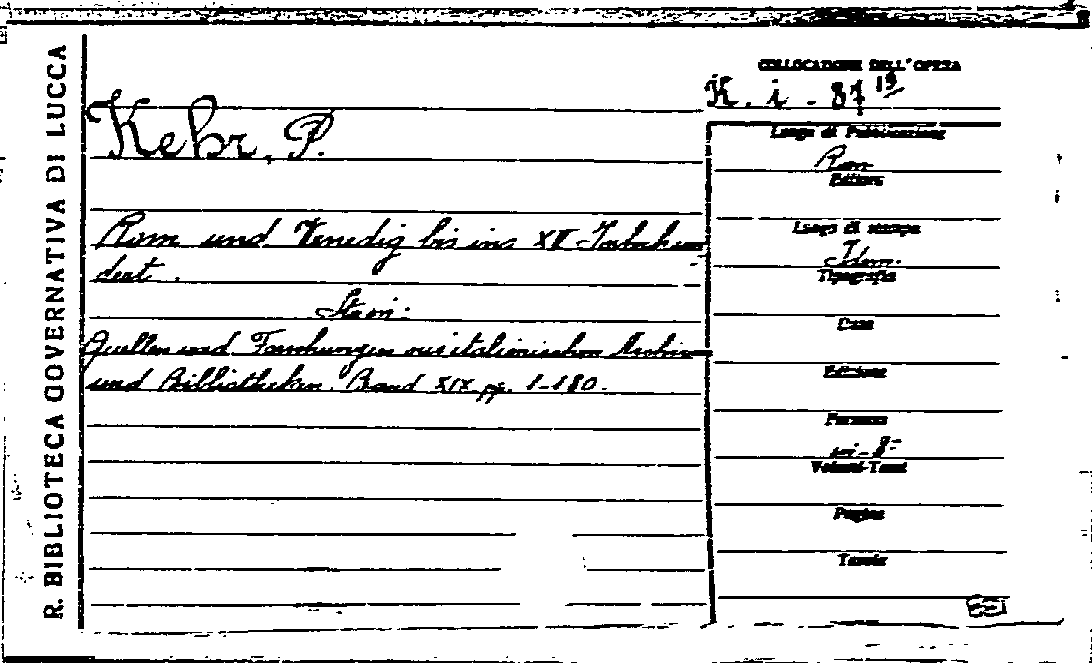 R. BIBLIOTECA GOVERNATIVA DI LUCCA
COLLOCAZIONE DELL'OPERA
K. i - 87 19
Kehr, P.
Rom und Venedig bis ins XII Jarhun
dert.
Quellen und Forschungen aus italienischen Archiven
und Bibliotheken. Band XIX pp. 1-180.
Luogo di Pubblicazione
Rom
Editore
Luogo di stampa
Idem.
Tipografia
Data
Edizione
Formato
in-8°
Volumi-Tomi
Pagine
Tavole